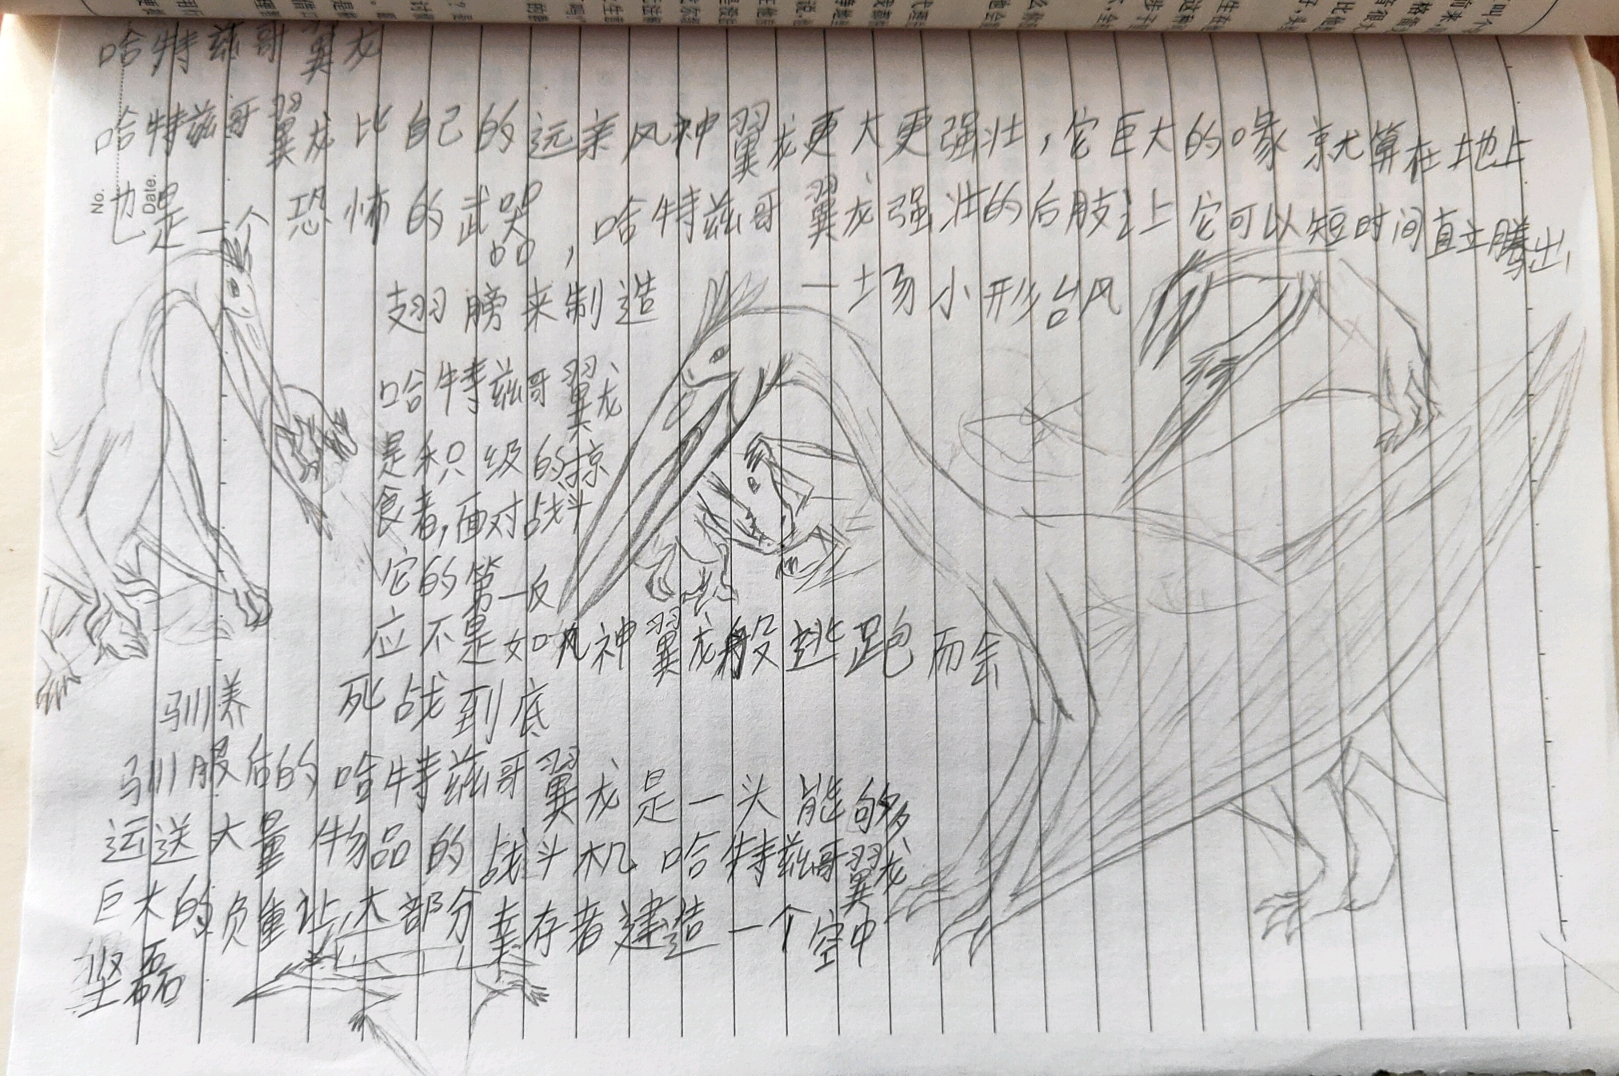 哈特兹哥翼龙
哈特兹哥翼龙比自己的远亲风神翼龙更大更强壮，它巨大的喙就算在地上
No.
Date.
也是一个恐怖的武器，哈特兹哥翼龙强壮的后肢让它可以短时间直立腾出
翅膀来制造一场小形台风
哈特兹哥翼龙
是积级的掠
食者,面对战斗
它的第一反
应不是如风神翼龙般逃跑而会
死战到底
驯养
驯服后的哈特兹哥翼龙是一头能够
运送大量物品的战斗机 哈特兹哥翼龙
巨大的负重让大部分幸存者建造一个空中
坚磊